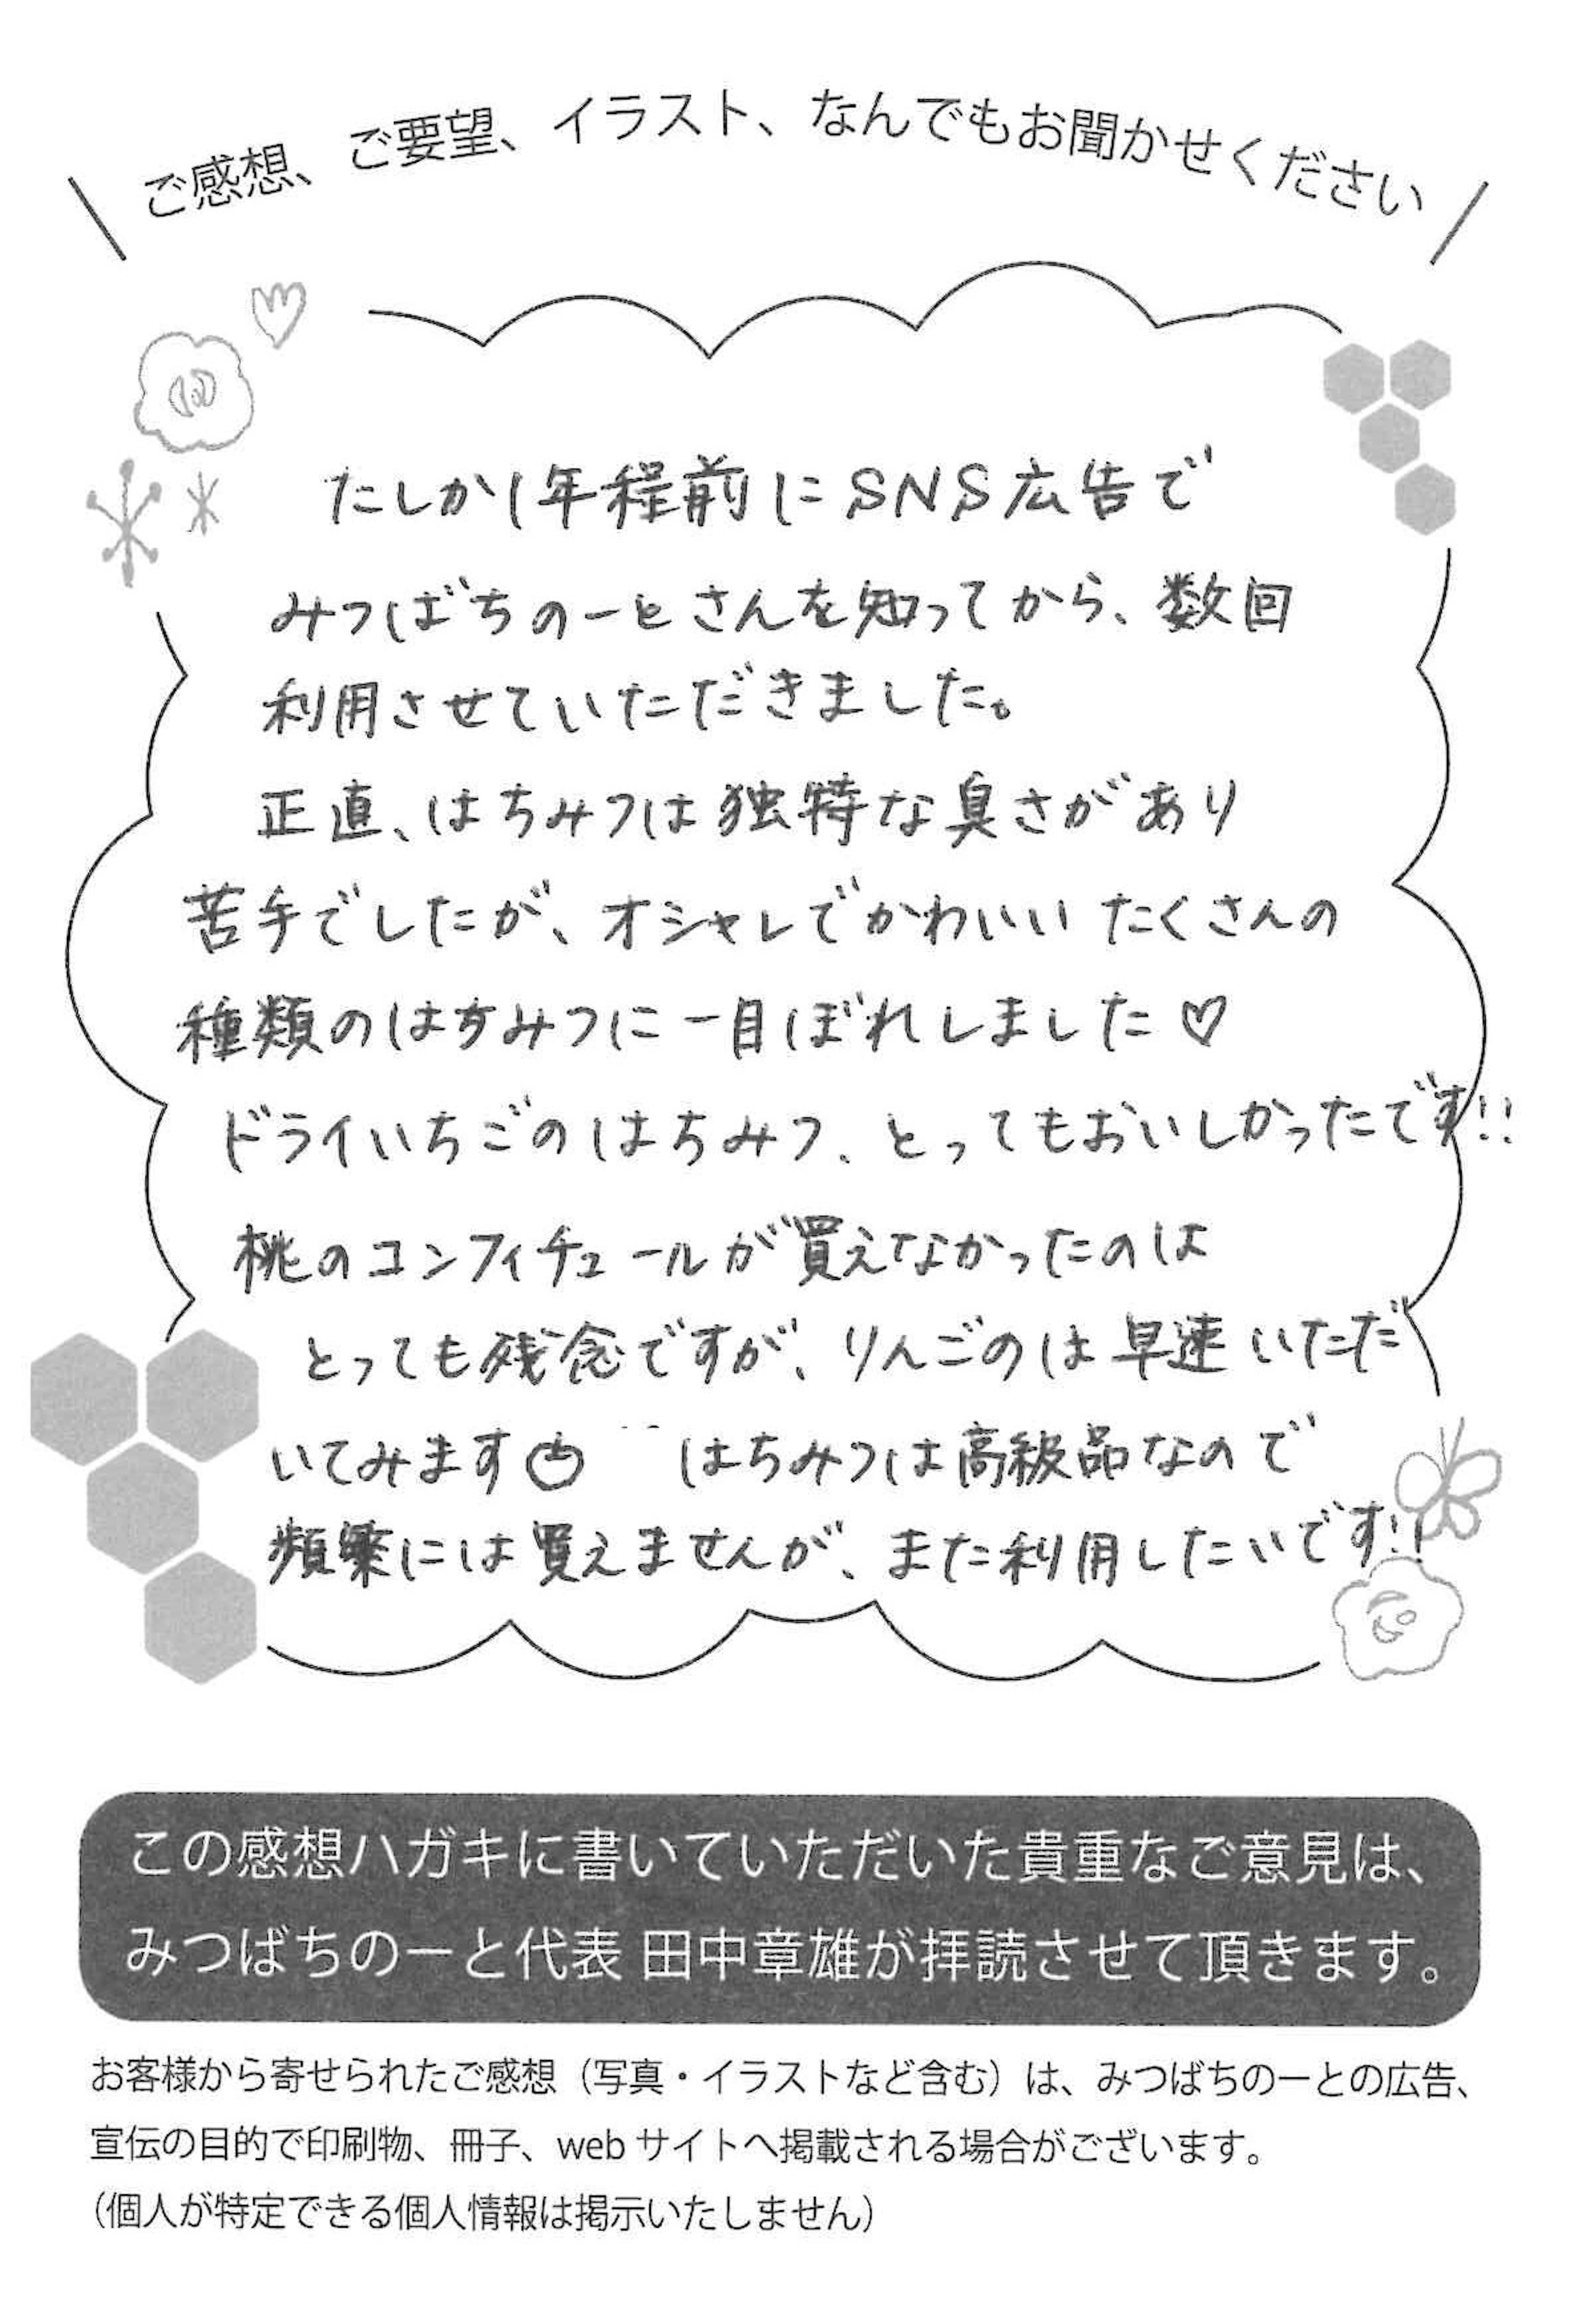 ご感想、ご要望、イラスト、なんでもお聞かせください
たしか1年程前にSNS広告で
みつばちのーとさんを知ってから、数回
利用させていただきました。
正直、はちみつは独特な臭さがあり
苦手でしたが、オシャレでかわいいたくさんの
種類のはちみつに一目ぼれしました♡
ドライいちごのはちみつ、とってもおいしかったです!!
桃のコンフィチュールが買えなかったのは
とっても残念ですが、りんごのは早速いただ
いてみます はちみつは高級品なので
頻繁には買えませんが、また利用したいです!!
この感想ハガキに書いていただいた貴重なご意見は、
みつばちのーと代表 田中章雄が拝読させて頂きます。
お客様から寄せられたご感想（写真・イラストなど含む）は、みつばちのーとの広告、
宣伝の目的で印刷物、冊子、webサイトへ掲載される場合がございます。
（個人が特定できる個人情報は掲示いたしません）